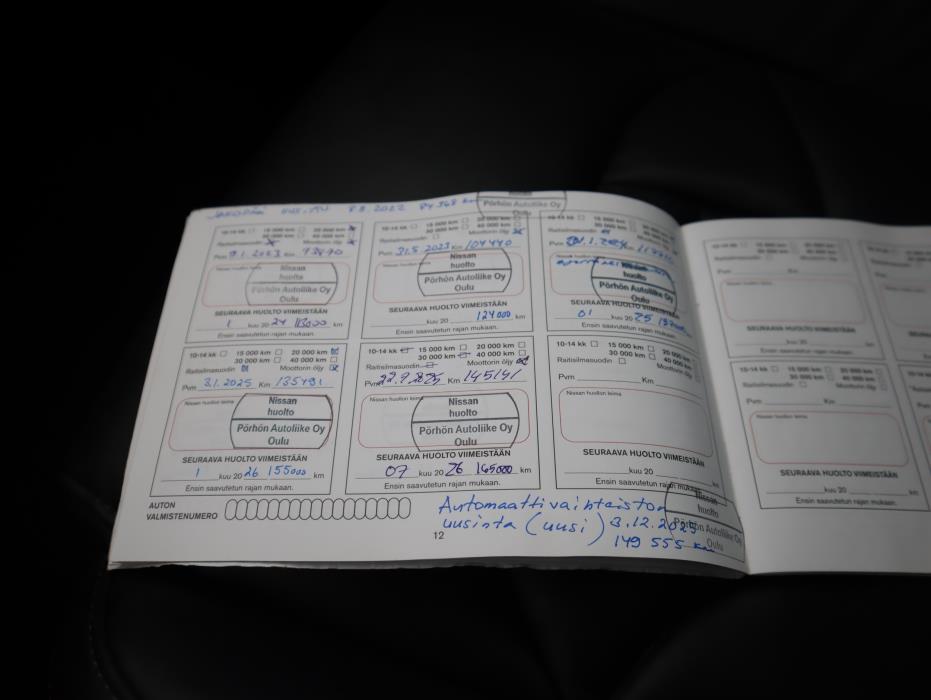 8.3.2022
Nissan
Pörhön Autoliike Oy
Oulu
10-14 kk 15 000 km 20 000 km
30 000 km 40 000 km
Raitisilmasuodin Moottorin öljy
Pvm 9.1.2023 Km
Nissan huollon leima
Nissan
huolto
Pörhön Autoliike Oy
Oulu
SEURAAVA HUOLTO VIIMEISTÄÄN
1 kuu 20 24 113000 km
Ensin saavutetun rajan mukaan.
10-14 kk 15 000 km 20 000 km
30 000 km 40 000 km
Raitisilmasuodin Moottorin öljy
Pvm 31.5 2023 Km 104440
Nissan
huolto
Pörhön Autoliike Oy
Oulu
SEURAAVA HUOLTO VIIMEISTÄÄN
kuu 20 124000 km
Ensin saavutetun rajan mukaan.
10-14 kk 15 000 km 20 000 km
30 000 km 40 000 km
Raitisilmasuodin Moottorin öljy
Pvm Km
Nissan
huolto
Pörhön Autoliike Oy
Oulu
SEURAAVA HUOLTO VIIMEISTÄÄN
01 kuu 20 25
Ensin saavutetun rajan mukaan.
10-14 kk 15 000 km 20 000 km
30 000 km 40 000 km
Raitisilmasuodin Moottorin öljy
Pvm 3.1.2025 Km 135491
Nissan huollon leima
Nissan
huolto
Pörhön Autoliike Oy
Oulu
SEURAAVA HUOLTO VIIMEISTÄÄN
1 kuu 20 26 155000 km
Ensin saavutetun rajan mukaan.
10-14 kk 15 000 km 20 000 km
30 000 km 40 000 km
Raitisilmasuodin Moottorin öljy
Pvm Km 145141
Nissan huollon leima
Nissan
huolto
Pörhön Autoliike Oy
Oulu
SEURAAVA HUOLTO VIIMEISTÄÄN
07 kuu 20 26 165000 km
Ensin saavutetun rajan mukaan.
10-14 kk 15 000 km 20 000 km
30 000 km 40 000 km
Raitisilmasuodin Moottorin öljy
Pvm Km
Nissan huollon leima
SEURAAVA HUOLTO VIIMEISTÄÄN
kuu 20 km
Ensin saavutetun rajan mukaan.
AUTON
VALMISTENUMERO
Automaattivaihteiston
uusinta (uusi) 3.12.2025
149 555 km
Nissan
huolto
Pörhön Autoliike Oy
Oulu
12
10-14 kk 15 000 km 20 000 km
30 000 km 40 000 km
Raitisilmasuodin Moottorin öljy
Pvm Km
Nissan huollon leima
SEURAAVA HUOLTO VIIMEISTÄÄN
kuu 20 km
Ensin saavutetun rajan mukaan.
10-14 kk 15 000 km 20 000 km
30 000 km 40 000 km
Raitisilmasuodin Moottorin öljy
Pvm Km
Nissan huollon leima
SEURAAVA HUOLTO VIIMEISTÄÄN
kuu 20 km
Ensin saavutetun rajan mukaan.